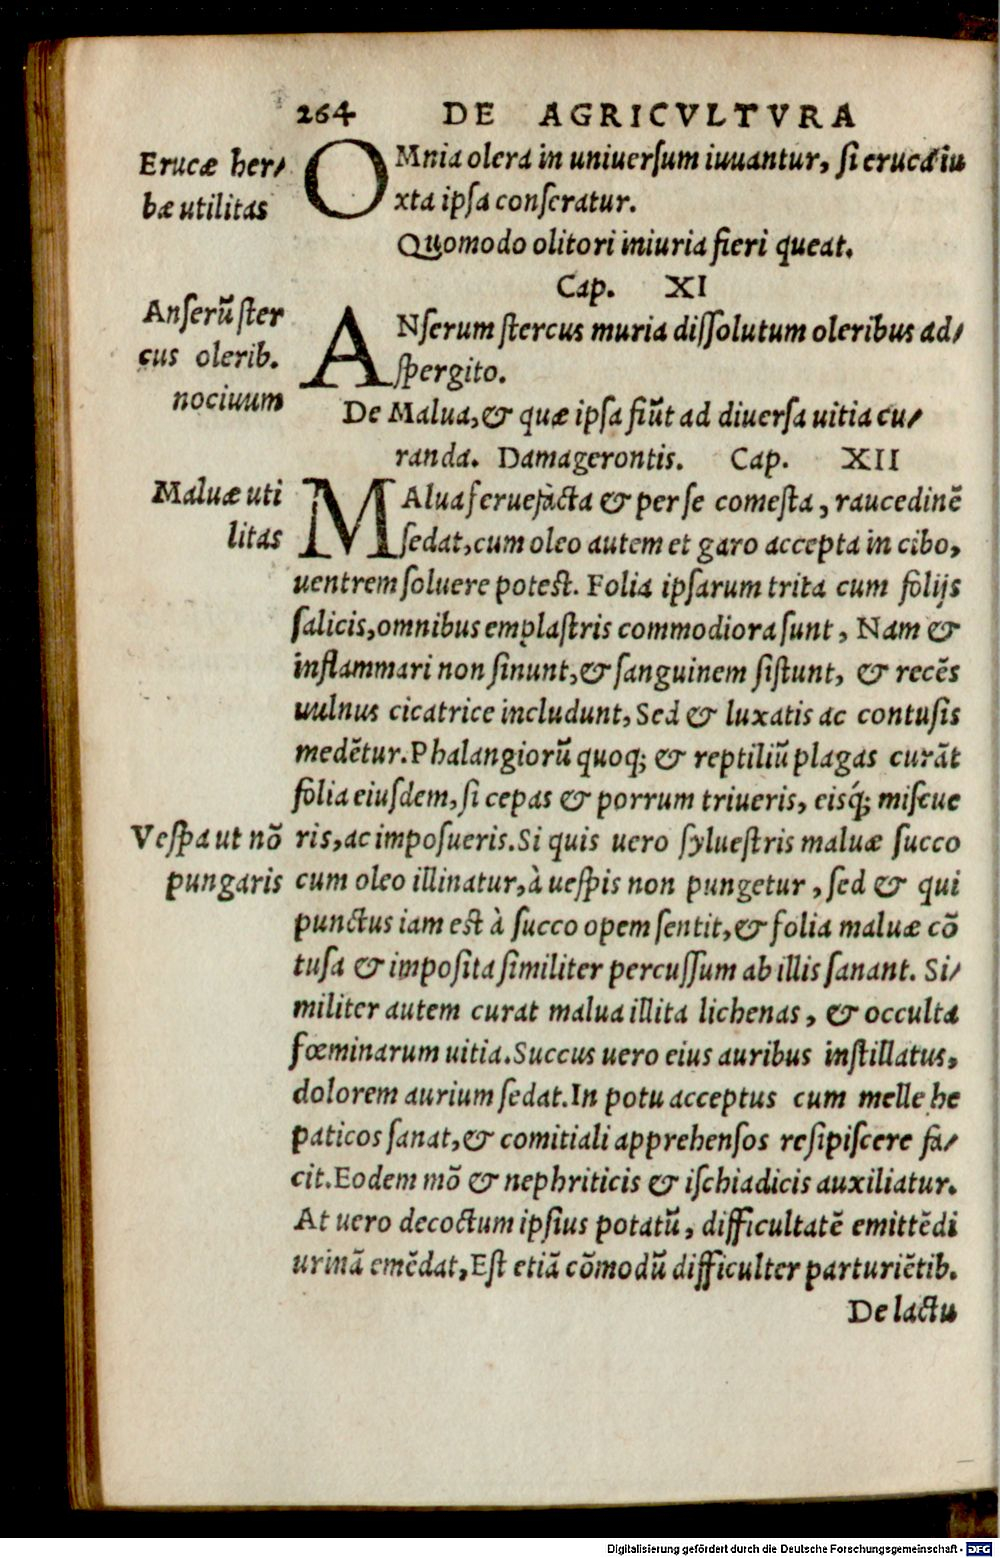 264 DE AGRICVLTVRA
Erucæ her/
bæ utilitas
OMnia olera in uniuersum iuuantur, si eruca iu
xta ipsa conseratur.
Quomodo olitori iniuria fieri queat.
Cap. XI
Anserũ ster
cus olerib.
nociuum
ANserum stercus muria dissolutum oleribus ad/
spergito.
De Malua, & quæ ipsa fiũt ad diuersa uitia cu/
randa. Damagerontis. Cap. XII
Maluæ uti
litas
MAlua feruefacta & per se comesta, raucedinẽ
sedat, cum oleo autem et garo accepta in cibo,
uentrem soluere potest. Folia ipsarum trita cum folijs
salicis, omnibus emplastris commodiora sunt, Nam &
inflammari non sinunt, & sanguinem sistunt, & recẽs
uulnus cicatrice includunt, Sed & luxatis ac contusis
medẽtur. Phalangiorũ quoq; & reptiliũ plagas curãt
folia eiusdem, si cepas & porrum triueris, eisq́; miscue
Vespa ut nõ
pungaris
ris, ac imposueris. Si quis uero syluestris maluæ succo
cum oleo illinatur, à uespis non pungetur, sed & qui
punctus iam est à succo opem sentit, & folia maluæ cõ
tusa & imposita similiter percussum ab illis sanant. Si/
militer autem curat malua illita lichenas, & occulta
fœminarum uitia. Succus uero eius auribus instillatus,
dolorem aurium sedat. In potu acceptus cum melle he
paticos sanat, & comitiali apprehensos resipiscere fa/
cit. Eodem mõ & nephriticis & ischiadicis auxiliatur.
At uero decoctum ipsius potatũ, difficultatẽ emittẽdi
urinã emẽdat, Est etiã cõmodũ difficulter parturiẽtib.
De lactu
Digitalisierung gefördert durch die Deutsche Forschungsgemeinschaft - DFG